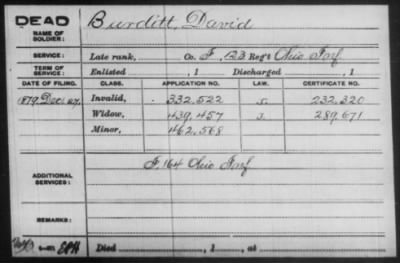 DEAD Burditt, David
NAME OF SOLDIER:
SERVICE: Late rank, Co. F, 123 Reg't Ohio Inf
TERM OF SERVICE: Enlisted , 1 Discharged , 1
DATE OF FILING. CLASS. APPLICATION NO. LAW. CERTIFICATE NO.
1879 Dec 27 Invalid, 332,522 232,320
Widow, 439,457 289,671
Minor, 462,568
ADDITIONAL SERVICES: F 164 Ohio Inf
REMARKS:
Died , 1 , at